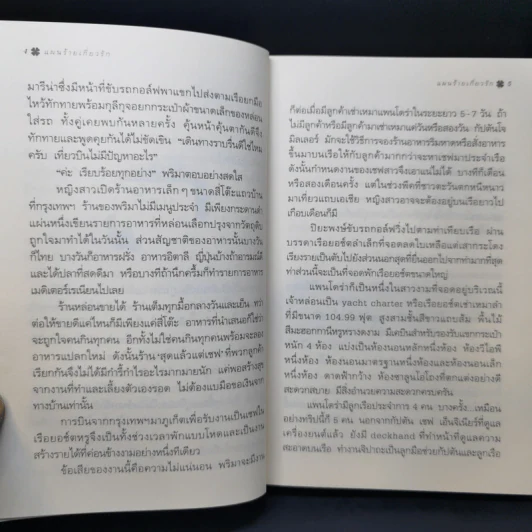 4 ☘ แผนร้ายเกี่ยวรัก
มารีน่าซึ่งมีหน้าที่ขับรถกอล์ฟพาแขกไปส่งตามเรือยกมือ
ไหว้ทักทายพร้อมกุลีกุจอยกกระเป๋าผ้าขนาดเล็กของหล่อน
ใส่รถ ทั้งคู่เคยพบกันหลายครั้ง คุ้นหน้าคุ้นตากันดีจึง
ทักทายและพูดคุยกันได้ไม่ขัดเขิน “เดินทางราบรื่นดีใช่ไหม
ครับ เที่ยวบินไม่มีปัญหาอะไร”
“ค่ะ เรียบร้อยทุกอย่าง” พริมาตอบอย่างสดใส
หญิงสาวเปิดร้านอาหารเล็กๆ ขนาดสี่โต๊ะแถวบ้าน
ที่กรุงเทพฯ ร้านของพริมาไม่มีเมนูประจำ มีเพียงกระดานดำ
แผ่นหนึ่งเขียนรายการอาหารที่หล่อนเลือกปรุงจากวัตถุดิบ
ถูกใจมาทำได้ในวันนั้น ส่วนสัญชาติของอาหารนั้นบางวัน
ก็ไทย บางวันก็อาหารฝรั่ง อาหารอิตาลี ญี่ปุ่นบ้างถ้าอารมณ์ดี
และได้ปลาที่สดดีมา หรือบางทีถ้านึกครึ้มก็ทำรายการอาหาร
เมดิเตอร์เรเนียนไปเลย
ร้านหล่อนขายได้ ร้านเต็มทุกมื้อกลางวันและเย็น ทว่า
ต่อให้ขายดีแค่ไหนก็มีเพียงแค่สี่โต๊ะ อาหารที่นำเสนอก็ใช่ว่า
จะถูกใจคนกินทุกคน อีกทั้งไม่ใช่คนกินทุกคนพร้อมจะลอง
อาหารแปลกใหม่ ดังนั้นร้าน ‘สุดแล้วแต่เชฟ’ ที่พวกลูกค้า
เรียกกันจึงไม่ได้มีกำรี้กำไรอะไรมากมายนัก แค่พอสร้างสุข
จากงานที่ทำและเลี้ยงตัวเองรอด ไม่ต้องแบมือขอเงินจาก
ทางบ้านเท่านั้น
การบินจากกรุงเทพฯ มาภูเก็ตเพื่อรับงานเป็นเชฟใน
เรือยอชต์หรูจึงเป็นทั้งช่วงเวลาพักแบบโหดและเป็นงาน
สร้างรายได้ที่ค่อนข้างงามอย่างหนึ่งทีเดียว
ข้อเสียของงานนี้คือความไม่แน่นอน พริมาจะมีงาน
แผนร้ายเกี่ยวรัก ☘ 5
ก็ต่อเมื่อมีลูกค้าเช่าเหมาแพนโดร่าในระยะยาว 5-7 วัน ถ้า
ไม่มีลูกค้าหรือมีลูกค้ามาเช่าเหมาแค่วันหรือสองวัน กัปตันโจ
มิลเลอร์ มักจะใช้วิธีการจองร้านอาหารริมหาดหรือสั่งอาหาร
ขึ้นมาบนเรือให้กับลูกค้ามากกว่าจะหาเชฟมาประจำเรือ
ดังนั้นกำหนดงานของเชฟสาวจึงเอาแน่ไม่ได้ บางทีก็เดือน
หรือสองเดือนครั้ง แต่ในช่วงพีคที่ชาวตะวันตกหนีหนาว
มาเที่ยวแถบเอเชีย หญิงสาวอาจจะต้องอยู่บนเรือยาวไป
เกือบเดือนก็มี
ปิยะพงษ์ขับรถกอล์ฟวิ่งไปตามท่าเทียบเรือ ผ่าน
บรรดาเรือยอชต์ลำเล็กที่จอดลดใบเหลือแต่เสากระโดง
เรียงรายเป็นตับไปยังส่วนนอกสุดที่ยื่นออกไปจากท่ามากที่สุด
ท่าส่วนนี้จะเป็นที่จอดพักเรือยอชต์ขนาดใหญ่
แพนโดร่าก็เป็นหนึ่งในสาวงามที่จอดอยู่บริเวณนี้
เจ้าหล่อนเป็น yacht charter หรือเรือยอชต์เช่าเหมาลำ
ที่มีขนาด 104.99 ฟุต สูงสามชั้นสีขาวแถบส้ม พื้นไม้
สีมะฮอกกานีหรูหรางดงาม มีเคบินสำหรับรองรับแขกกระเป๋า
หนัก 4 ห้อง แบ่งเป็นห้องนอนหลักหนึ่งห้อง ห้องวีไอพี
หนึ่งห้อง ห้องนอนมาตรฐานหนึ่งห้องและห้องนอนเล็ก
หนึ่งห้อง ดาดฟ้ากว้าง ห้องซาลูนโอ่โถงที่ตกแต่งอย่างดี
สะดวกสบาย มีสิ่งอำนวยความสะดวกครบครัน
แพนโดร่ามีลูกเรือประจำการ 4 คน บางครั้ง...เหมือน
อย่างทริปนี้ก็ 5 คน นอกจากกัปตัน เชฟ เอ็นจิเนียร์ที่ดูแล
เครื่องยนต์แล้ว ยังมี deckhand ที่ทำหน้าที่ดูแลความ
สะอาดบนเรือ ทำงานจิปาถะเป็นลูกมือช่วยกัปตันและลูกเรือ